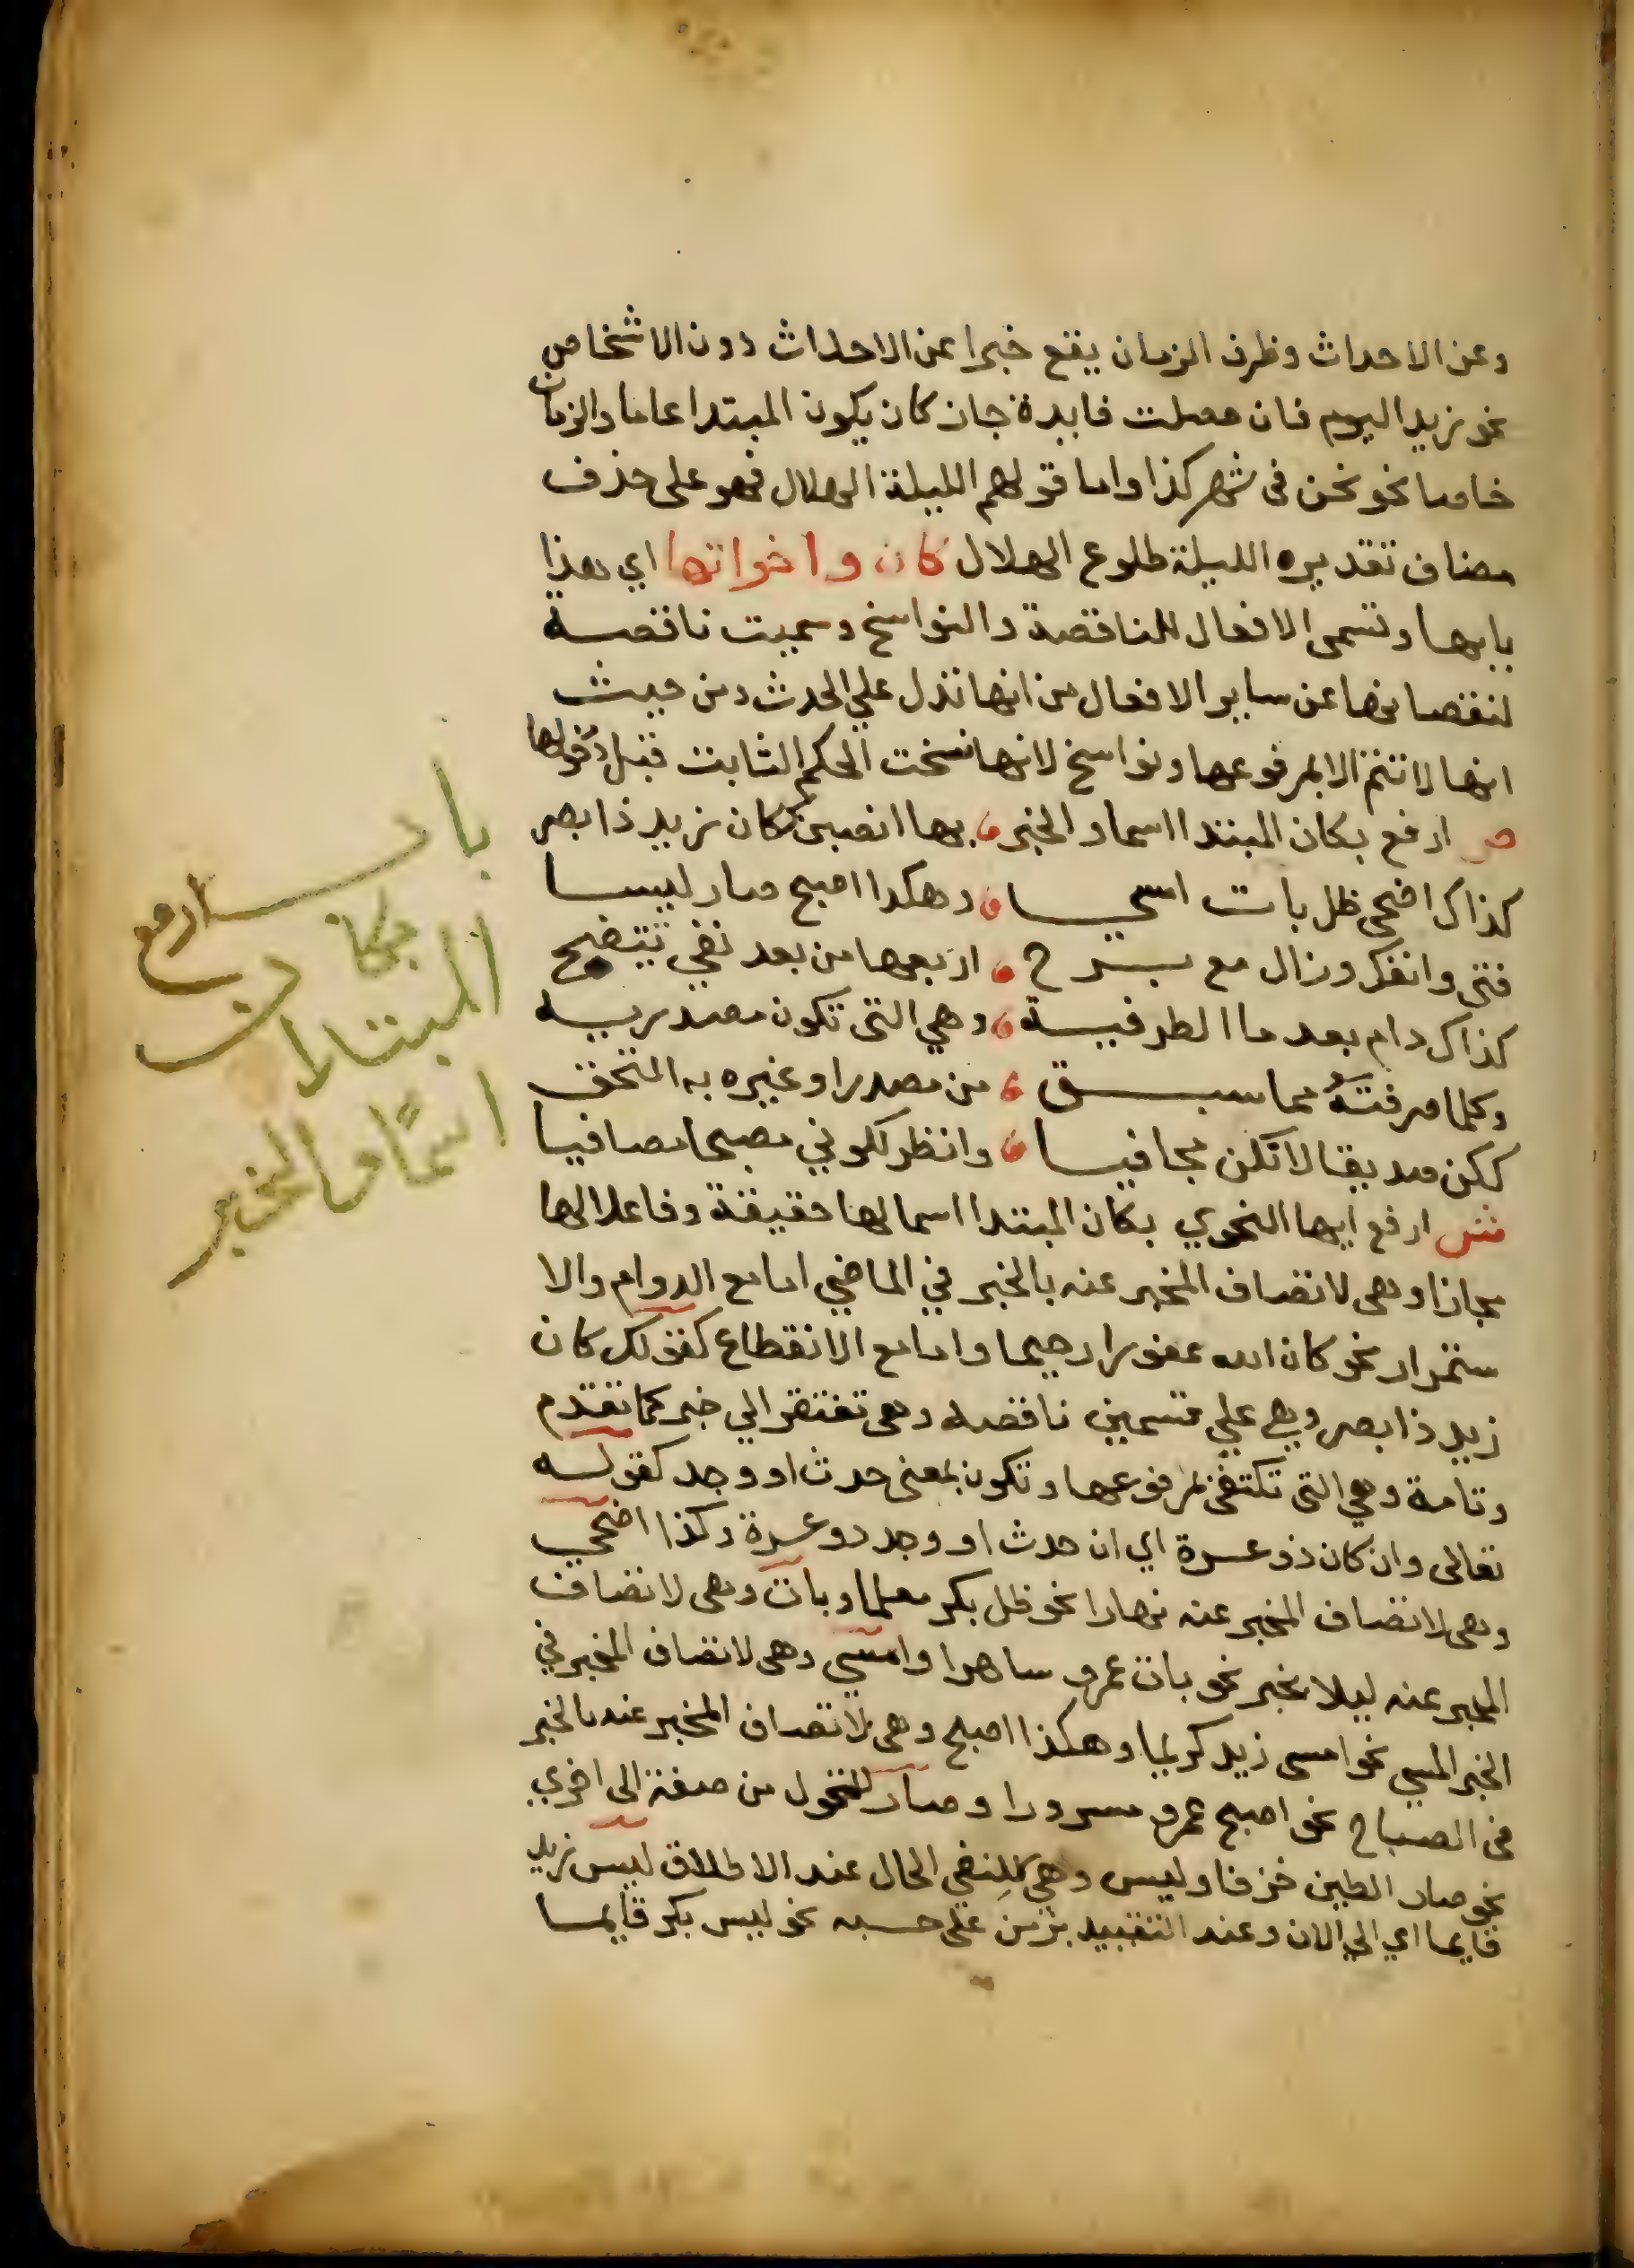 وعن الاحداث وظرف الزمان يقع خبرا عن الاحداث دون الاشخاص
نحو زيد اليوم فان حصلت فايدة جاز كان يكون المبتدا عاما والزمان
خاصا نحو نحن في شهر كذا واما قولهم الليلة الهلال فهو على حذف
مضاف تقديره الليلة طلوع الهلال كان واخواتها اي هذا
بابها وتسمى الافعال الناقصة والنواسخ وسميت ناقصه
لنقصانها عن ساير الافعال من انها تدل علي الحدث ومن حيث
انها لا تتم الا بمرفوعها ونواسخ لانها نسخت الحكم الثابت قبل دخولها
ص ارفع بكان المبتدا اسما والخبر بها انصبن ككان زيد ذا بصر
كذاك اضحى ظل بات امسي وهكدا اصبح صار ليسا
فتى وانفك وزال مع برح اربعها من بعد نفي تتضح
كذاك دام بعد ما الظرفيه وهي التى تكون مصدريه
وكلما صرفته مما سبق من مصدر او غيره به التحق
ككن صديقا لا تكن مجافيا وانظر لكوني مصبحا مصافيا
ش ارفع ايها النحوي بكان المبتدا اسما لها حقيقة وفاعلا لها
مجازا وهى لاتصاف المخبر عنه بالخبر في الماضي اما مع الدوام والا
ستمرار نحو كان الله غفورا رحيما واما مع الانقطاع كقولك كان
زيد ذا بصر وهي علي قسمين ناقصه وهى تفتقر الي خبر كما تقدم
وتامة وهي التى تكتفى بمرفوعها وتكون بمعنى حدث او وجد كقوله
تعالى وان كان ذو عسرة اي ان حدث او وجد دو عسرة وكذا اضحي
وهى لاتصاف المخبر عنه نهارا نحو ظل بكر معلما وبات وهى لاتصاف
المخبر عنه ليلا بخبر نحو بات عمرو ساهرا وامسي وهى لاتصاف المخبر في
الخبر المسي نحو امسى زيد كريما وهكذا اصبح وهى لاتصاف المخبر عنه بالخبر
في الصباح نحو اصبح عمرو مسرورا وصار للتحول من صفة الى اخري
نحو صار الطين خزفا وليس وهي لنفي الحال عند الاطلاق ليس زيد
قايما اي الي الان وعند التقييد بزمن على حسبه نحو ليس بكر قايما
باب ارفع
بكان
المبتدا
اسمًا والخبر